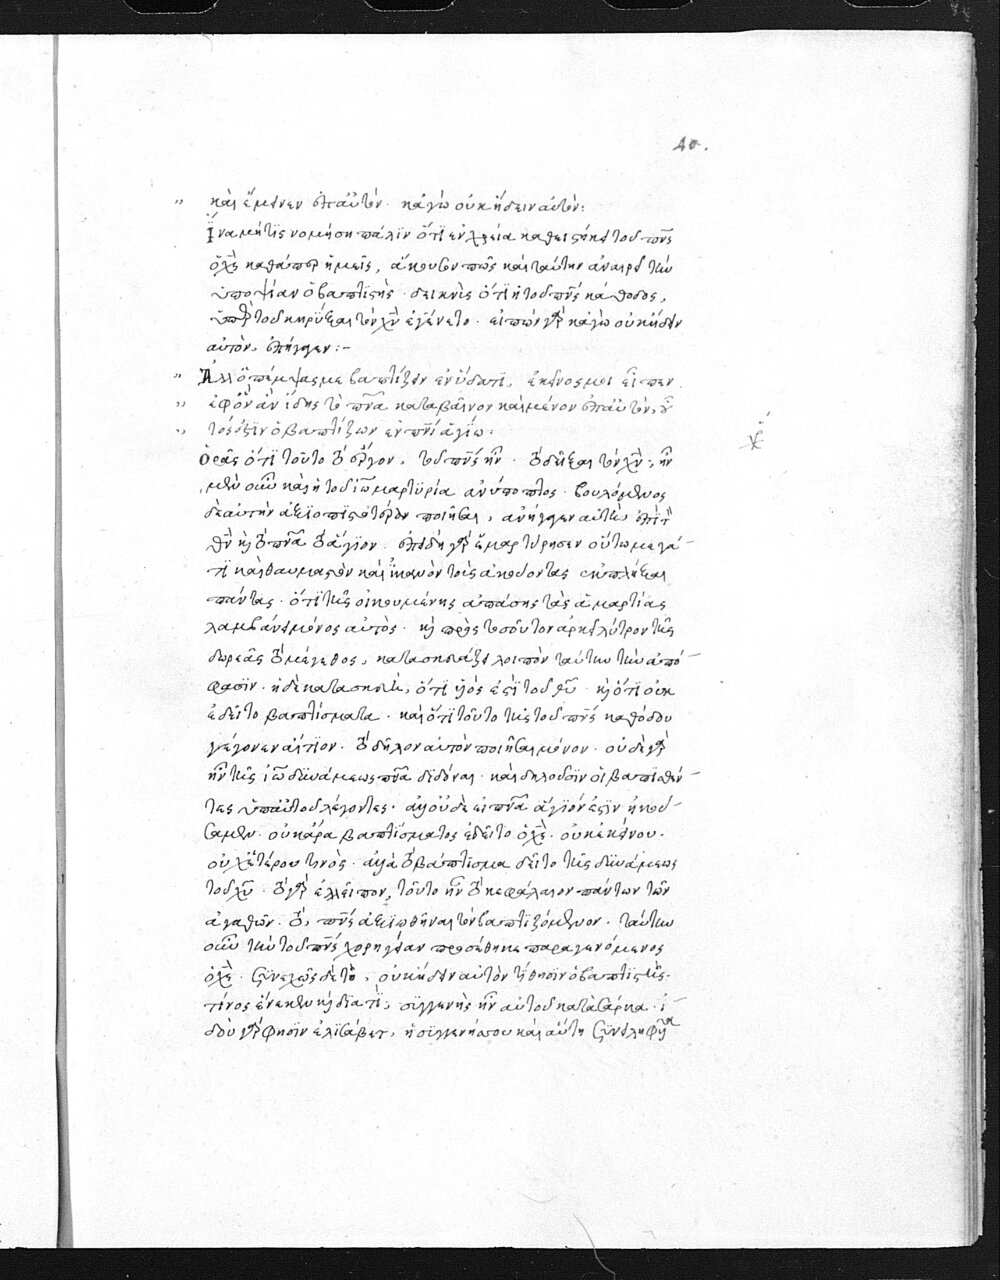 40.
" καὶ ἔμεινεν ἐπ' αὐτόν· κἀγὼ οὐκ ᾔδειν αὐτόν:
Ἵνα μή τις νομήσῃ πάλιν ὅτι ἐν χρεία καθειστήκει τοῦ πνς
ὁ χς καθάπερ ἡμεῖς, ἄκουσον πῶς καὶ ταύτην ἀναιρεῖ τὴν
ὑποψίαν ὁ βαπτιστής· δεικνὺς ὅτι ἡ τοῦ πνς κάθοδος,
ὑπὲρ τοῦ κηρύξαι τὸν χν ἐγένετο· εἰπὼν γὰρ κἀγὼ οὐκ ᾔδειν
αὐτὸν, ἐπήγαγεν:-
" Ἀλλ' ὁ πέμψας με βαπτίζειν ἐν ὕδατι, ἐκεῖνος μοι εἶπεν
" ἐφ' ὃν ἂν ἴδῃς τὸ πνα καταβαῖνον καὶ μένον ἐπ' αὐτὸν, οὗ
" τός ἐστιν ὁ βαπτίζων ἐν πνι ἁγίω:
Ὁρᾶς ὅτι τοῦτο τὸ ἔργον, τοῦ πνς ἦν· τὸ δεῖξαι τὸν χν· ἦν
μὲν οὖν καὶ ἡ τοῦ ἰω μαρτυρία ἀνύποπτος· βουλόμενος
δὲ αὐτὴν ἀξιοπιστοτέραν ποιῆσαι, ἀνήγαγεν αὐτὴν ἐπὶ τὸν
θν κὴ τὸ πνα τὸ ἅγιον· ἐπειδὴ γὰρ ἐμαρτύρησεν οὕτω μέγα
τι καὶ θαυμαστὸν καὶ ἱκανὸν τοὺς ἀκούοντας ἐκπλῆξαι
πάντας· ὅτι τῆς οἰκουμένης ἁπάσης τὰς ἁμαρτίας
λαμβάνει μόνος αὐτὸς· κὴ πρὸς τοσοῦτον ἀρκεῖ λύτρον τῆς
δωρεᾶς τὸ μέγεθος, κατασκευάζει λοιπὸν ταύτην τὴν ἀπό-
φασιν· ἡ δὲ κατασκευὴ, ὅτι υἱός ἐστι τοῦ θυ· κὴ ὅτι οὐκ
ἐδεῖτο βαπτίσματα· καὶ ὅτι τοῦτο τῆς τοῦ πνς καθόδου
γέγονεν αἴτιον· τὸ δῆλον αὐτὸν ποιῆσαι μόνον· οὐδὲ γὰρ
ἦν τῆς ἰω δυνάμεως πνα διδόναι· καὶ δηλοῦσιν οἱ βαπτισθέν-
τες ὑπ' αὐτοῦ λέγοντες· ἀλλ' οὐδὲ εἰ πνα ἅγιόν ἐστιν ἠκού-
σαμεν· οὐκ ἄρα βαπτίσματος ἐδεῖτο ὁ χς· οὐκ ἐκείνου·
οὐχ ἑτέρου τινὸς· ἀλλὰ τὸ βάπτισμα δεῖτο τῆς δυνάμεως
τοῦ χυ· τὸ γὰρ ἐλλεῖπον, τοῦτο ἦν τὸ κεφάλαιον πάντων τῶν
ἀγαθῶν· τὸ, πνς ἀξιωθῆναι τὸν βαπτιζόμενον· ταύτην
οὖν τὴν τοῦ πνς χορηγίαν προσέθηκε παραγενόμενος
ὁ χς· συνεχῶς δὲ τὸ, οὐκ ᾔδειν αὐτὸν τίθησιν ὁ βαπτιστὴς·
τίνος ἕνεκεν κὴ διατί, συγγενὴς ἦν αὐτοῦ κατὰ σάρκα· ἰ-
δοὺ γάρ φησιν ἐλισάβετ, ἡ συγγενής σου καὶ αὕτη συνειληφυῖα